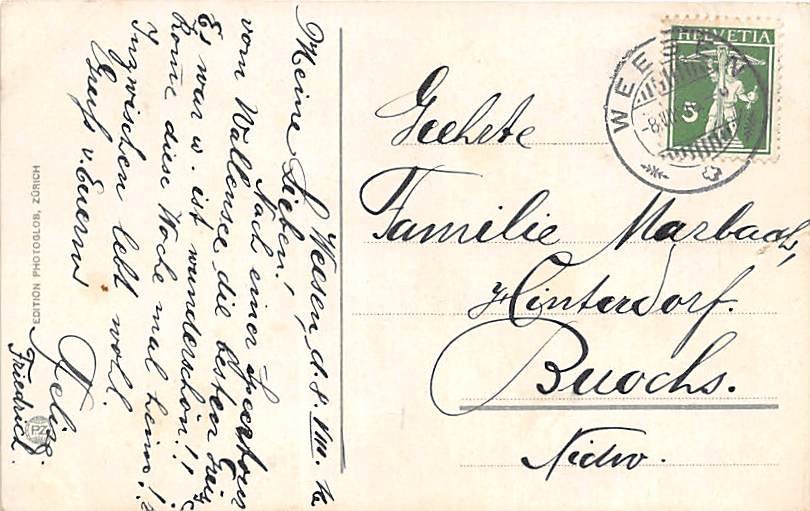 Weesen, d. 8. VIII.
Meine Lieben!
Nach einer
vom Wallensee die besten
Es war u. ist wunderschön!!
Komme diese Woche mal heim!
Inzwischen lebt wohl
Gruss v. Euerm
Friedrich.
EDITION PHOTOGLOB, ZÜRICH
PZ
Geehrte
Familie Marbach,
Hinterdorf.
Buochs.
Nidw.
HELVETIA
5
WEESEN